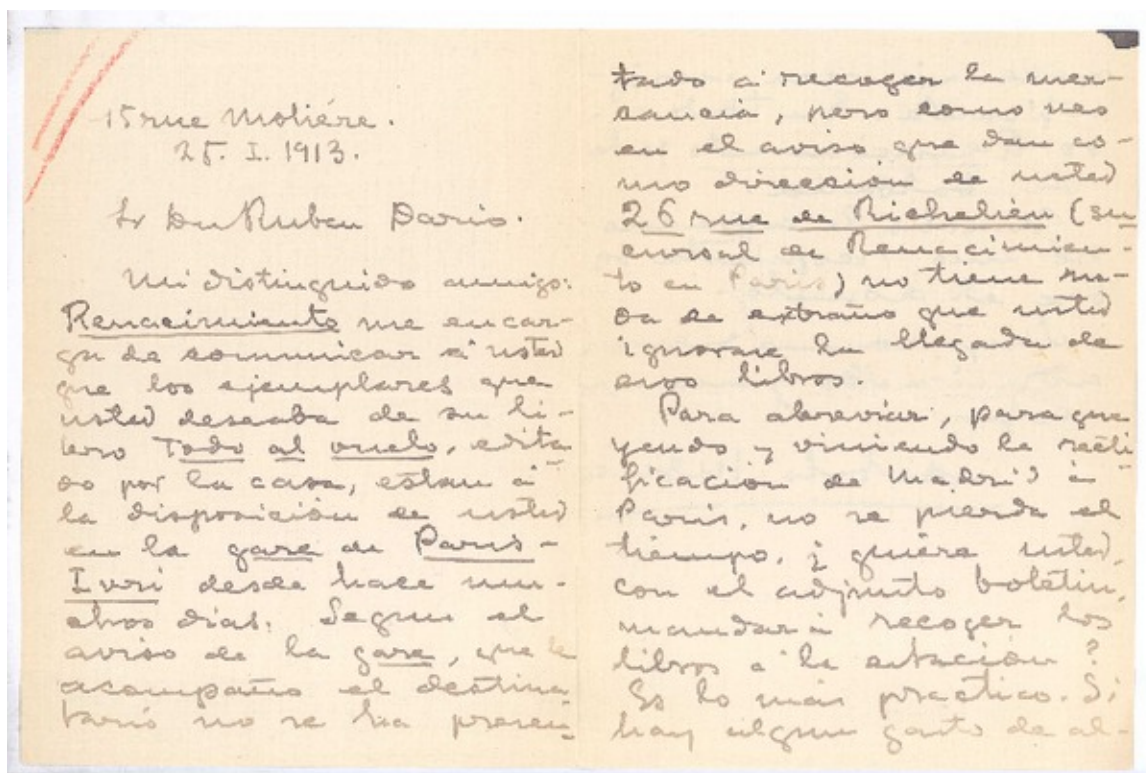 15 rue Moliére.
25. I. 1913.
Sr Dn Ruben Dario.
Mi distinguido amigo:
Renacimiento me encar-
ga de comunicar á usted
que los ejemplares que
usted deseaba de su li-
bro Todo al vuelo, edita-
do por la casa, estan á
la disposición de usted
en la gare de Paris-
Ivri desde hace mu-
chos dias. Segun el
aviso de la gare, que le
acompaño el destina-
tario no se ha presen-
tado á recoger la mer-
cancia, pero como veo
en el aviso que dan co-
mo dirección de usted
26 rue de Richeliéu (su
cursal de Renacimien-
to en Paris) no tiene na-
da de extraño que usted
ignorase la llegada de
esos libros.
Para abreviar, para que
yendo y viniendo la recti-
ficación de Madrid á
Paris, no se pierda el
tiempo, ¿quiére usted,
con el adjunto boletin,
mandar á recoger los
libros á la estación?
Es lo más practico. Si
hay algun gasto de al-